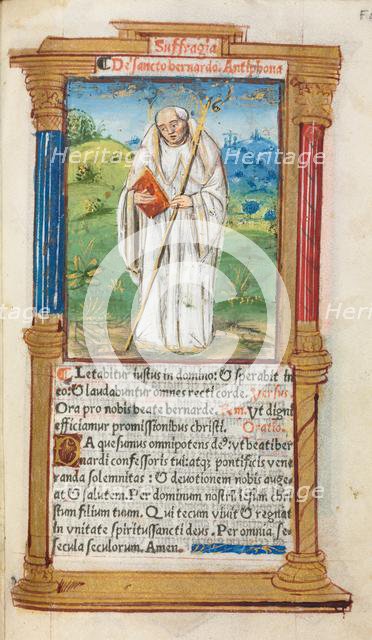 Fo
Suffragia
De sancto bernardo. Antiphona
Letabitur iustus in domino: & sperabit in
eo: & laudabuntur omnes recti corde. Versus.
Ora pro nobis beate bernarde. Rem. Vt digni
efficiamur promissionibus christi. Oratio.
DA quesumus omnipotens de9: vt beati ber
nardi confessoris tui atq; pontificis vene
randa solemnitas: & deuotionem nobis auge
at & salutem. Per dominum nostrum iesum chri
stum filium tuum. Qui tecum viuit & regnat
in vnitate spiritussancti deus. Per omnia se
secula seculorum. Amen.
Heritage
Heritage
Heritage
Heritage
Heritage
Heritage